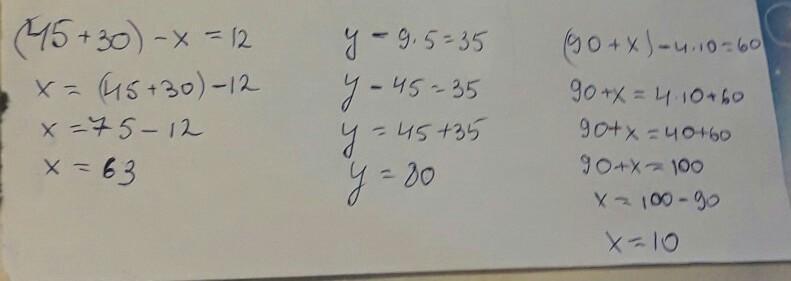 (45+30)-x=12
x=(45+30)-12
x=75-12
x=63
y-9·5=35
y-45=35
y=45+35
y=80
(90+x)-4·10=60
90+x=4·10+60
90+x=40+60
90+x=100
x=100-90
x=10